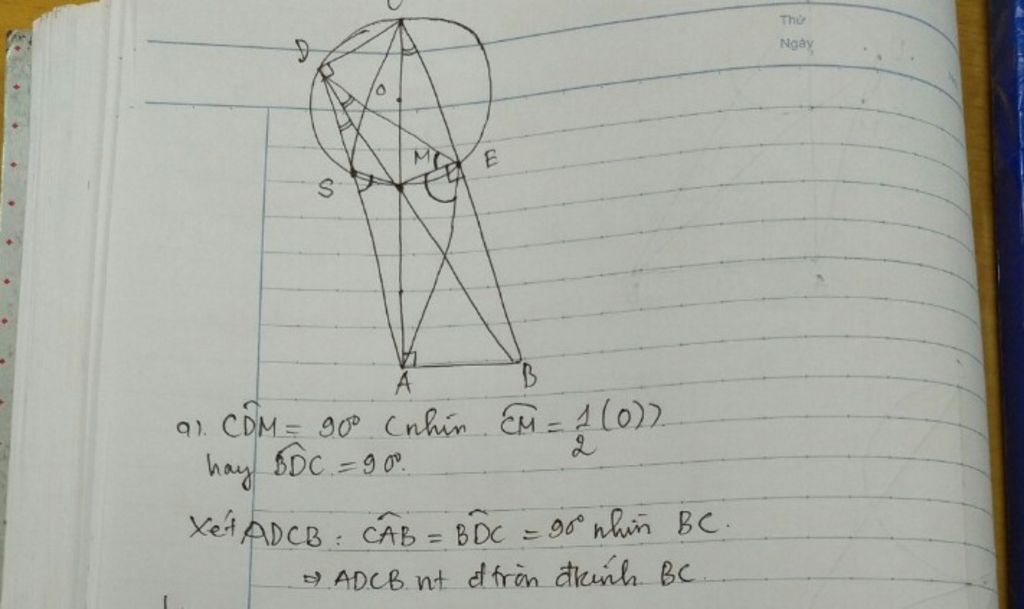 Thứ
Ngày
C
D
O
M
E
S
A
B
a). CDM̂ = 90° (nhìn CM̑ = 1/2 (O))
hay BDĈ = 90°.
Xét ADCB : CÂB = BD̂C = 90° nhìn BC.
⇒ ADCB nt đtròn đkính BC